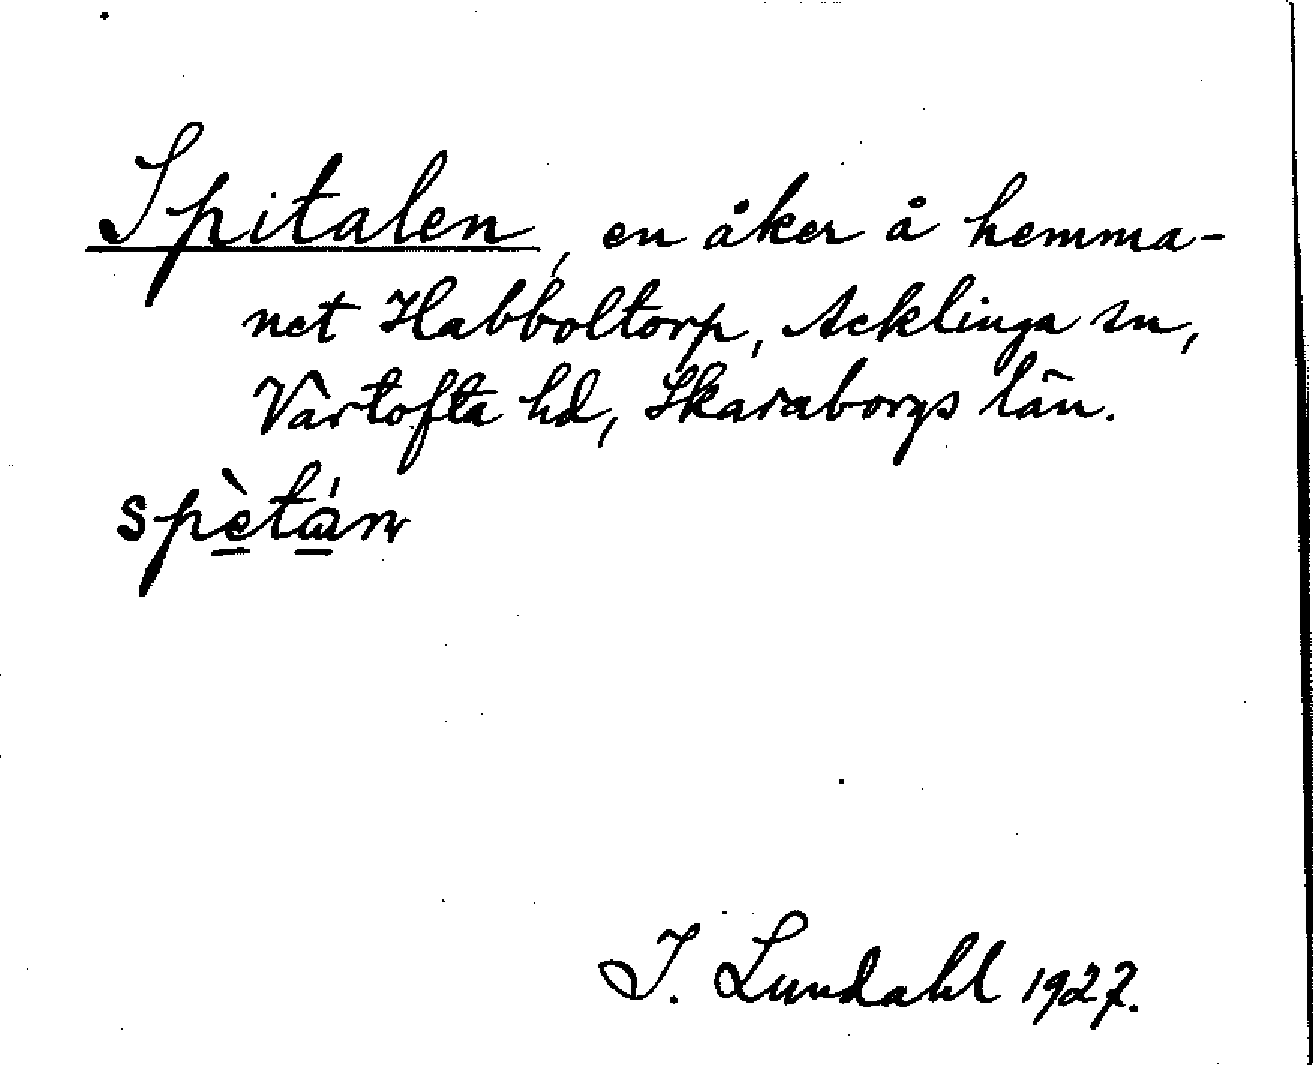 Spitalen, en åker å hemma-
net Habboltorp, Acklinga sn,
Vartofta hd, Skaraborgs län.
spètán
I. Lundahl 1927.